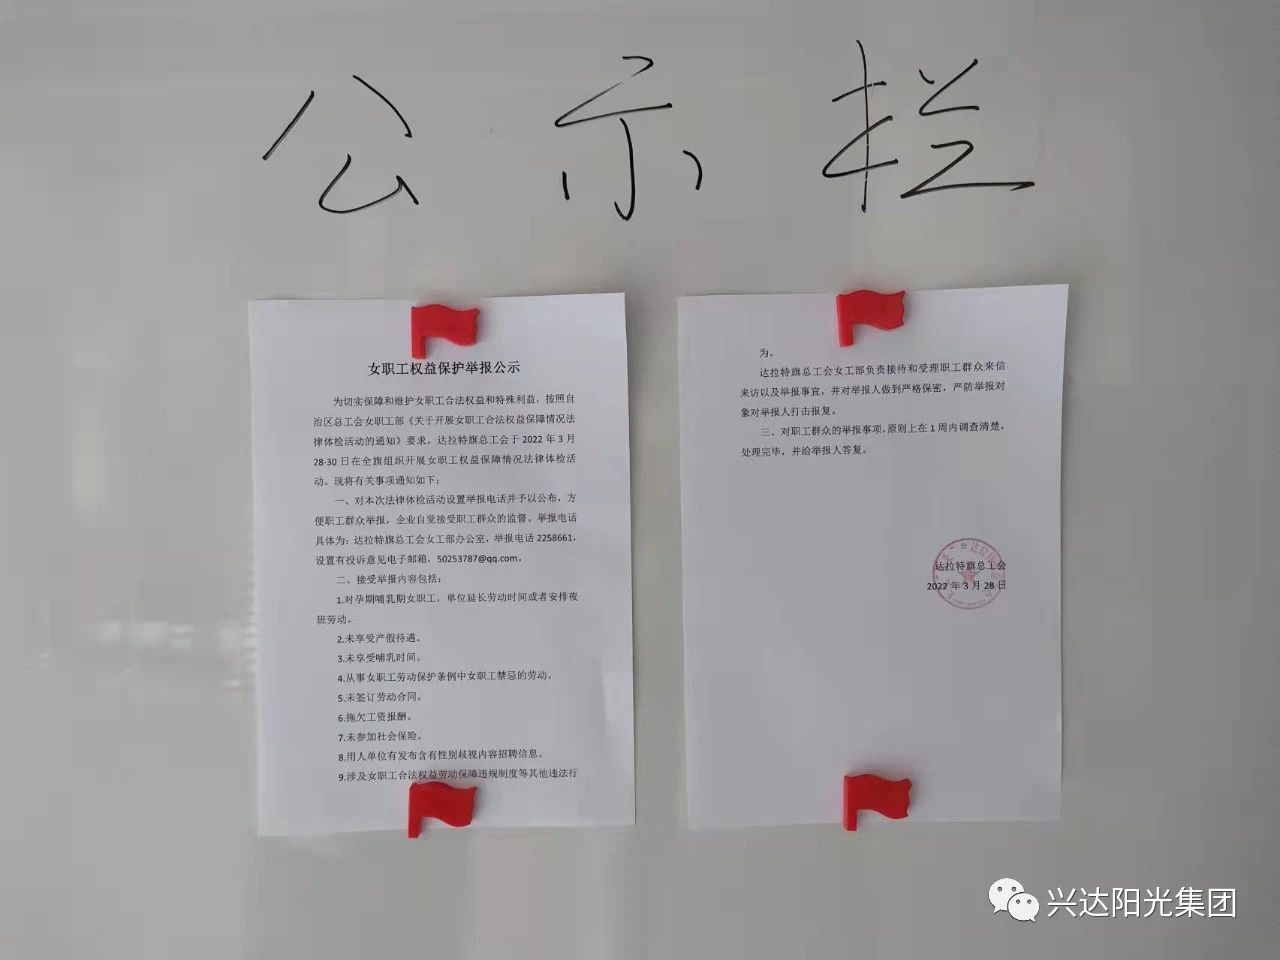 公示栏
女职工权益保护举报公示
为切实保障和维护女职工合法权益和特殊利益，按照自
治区总工会女职工部《关于开展女职工合法权益保障情况法
律体检活动的通知》要求，达拉特旗总工会于 2022 年 3 月
28-30 日在全旗组织开展女职工权益保障情况法律体检活
动。现将有关事项通知如下：
一、对本次法律体检活动设置举报电话并予以公布，方
便职工群众举报，企业自觉接受职工群众的监督。举报电话
具体为：达拉特旗总工会女工部办公室，举报电话 2258661，
设置有投诉意见电子邮箱，50253787@qq.com。
二、接受举报内容包括：
1.对孕期哺乳期女职工，单位延长劳动时间或者安排夜
班劳动。
2.未享受产假待遇。
3.未享受哺乳时间。
4.从事女职工劳动保护条例中女职工禁忌的劳动。
5.未签订劳动合同。
6.拖欠工资报酬。
7.未参加社会保险。
8.用人单位有发布含有性别歧视内容招聘信息。
9.涉及女职工合法权益劳动保障违规制度等其他违法行
为。
达拉特旗总工会女工部负责接待和受理职工群众来信
来访以及举报事宜，并对举报人做到严格保密，严防举报对
象对举报人打击报复。
三、对职工群众的举报事项，原则上在 1 周内调查清楚，
处理完毕，并给举报人答复。
达拉特旗总工会
2022 年 3 月 28 日
兴达阳光集团